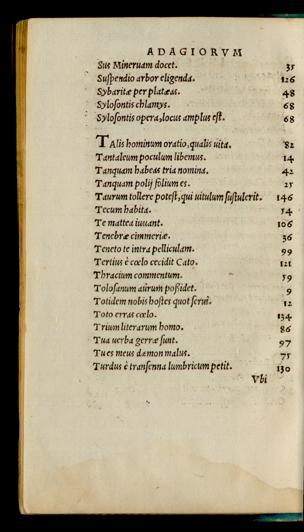 ADAGIORVM
Sus Mineruam docet. 35
Suspendio arbor eligenda. 126
Sybaritæ per plateas. 48
Sylosontis chlamys. 68
Sylosontis opera, locus amplus est. 68
TAlis hominum oratio, qualis uita. 82
Tantaleum poculum libemus. 14
Tanquam habeas tria nomina. 42
Tanquam polij folium es. 25
Taurum tollere potest, qui uitulum sustulerit. 146
Tecum habita. 54
Te mattea iuuant. 106
Tenebræ cimmeriæ. 36
Teneto te intra pelliculam. 99
Tertius è cœlo cecidit Cato. 121
Thracium commentum. 59
Tolosanum aurum possidet. 9
Totidem nobis hostes quot serui. 12
Toto erras cœlo. 134
Trium literarum homo. 86
Tua uerba gerræ sunt. 97
Tu es meus dæmon malus. 75
Turdus è transenna lumbricum petit. 130
Vbi